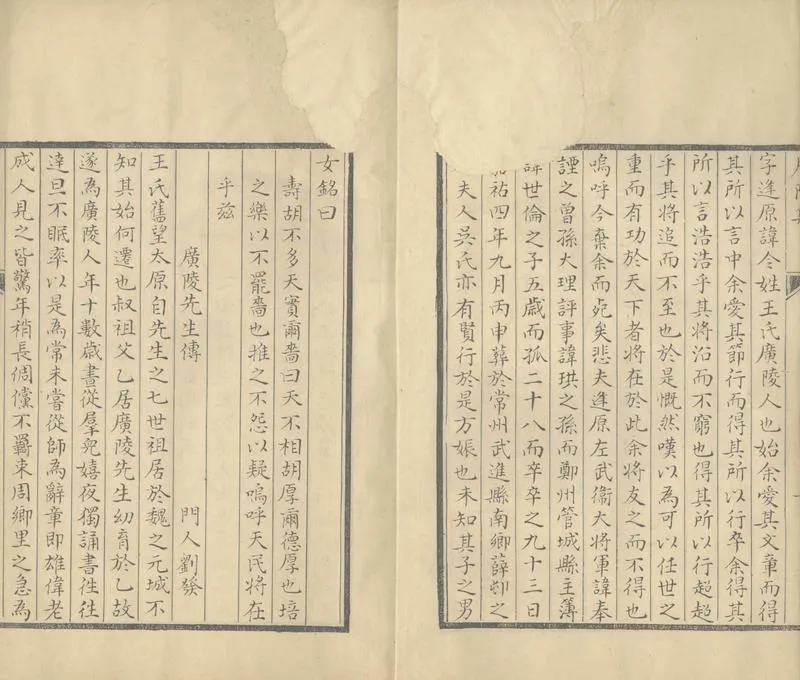 字逢原諱令姓王氏廣陵人也始余愛其文章而得
其所以言中余愛其節行而得其所以行卒余得其
所以言浩浩乎其將沿而不窮也得其所以行超超
乎其將追而不至也於是慨然嘆以為可以任世之
重而有功於天下者將在於此余將友之而不得也
嗚呼今棄余而死矣悲夫逢原左武衛大將軍諱奉
諲之曾孫大理評事諱珙之孫而鄭州管城縣主簿
諱世倫之子五歲而孤二十八而卒卒之九十三日
祐四年九月丙申葬於常州武進縣南鄉薛邨之
夫人吳氏亦有賢行於是方娠也未知其子之男
女銘曰
壽胡不多天實爾嗇曰天不相胡厚爾德厚也培
之樂以不罷嗇也推之不怨以疑嗚呼天民將在
乎茲
廣陵先生傳
門人劉發
王氏舊望太原自先生之七世祖居於魏之元城不
知其始何遷也叔祖父乙居廣陵先生幼育於乙故
遂為廣陵人年十數歲晝從羣兒嬉夜獨誦書往往
達旦不眠率以是為常未嘗從師為辭章即雄偉老
成人見之皆驚年稍長倜儻不羈束周鄉里之急為